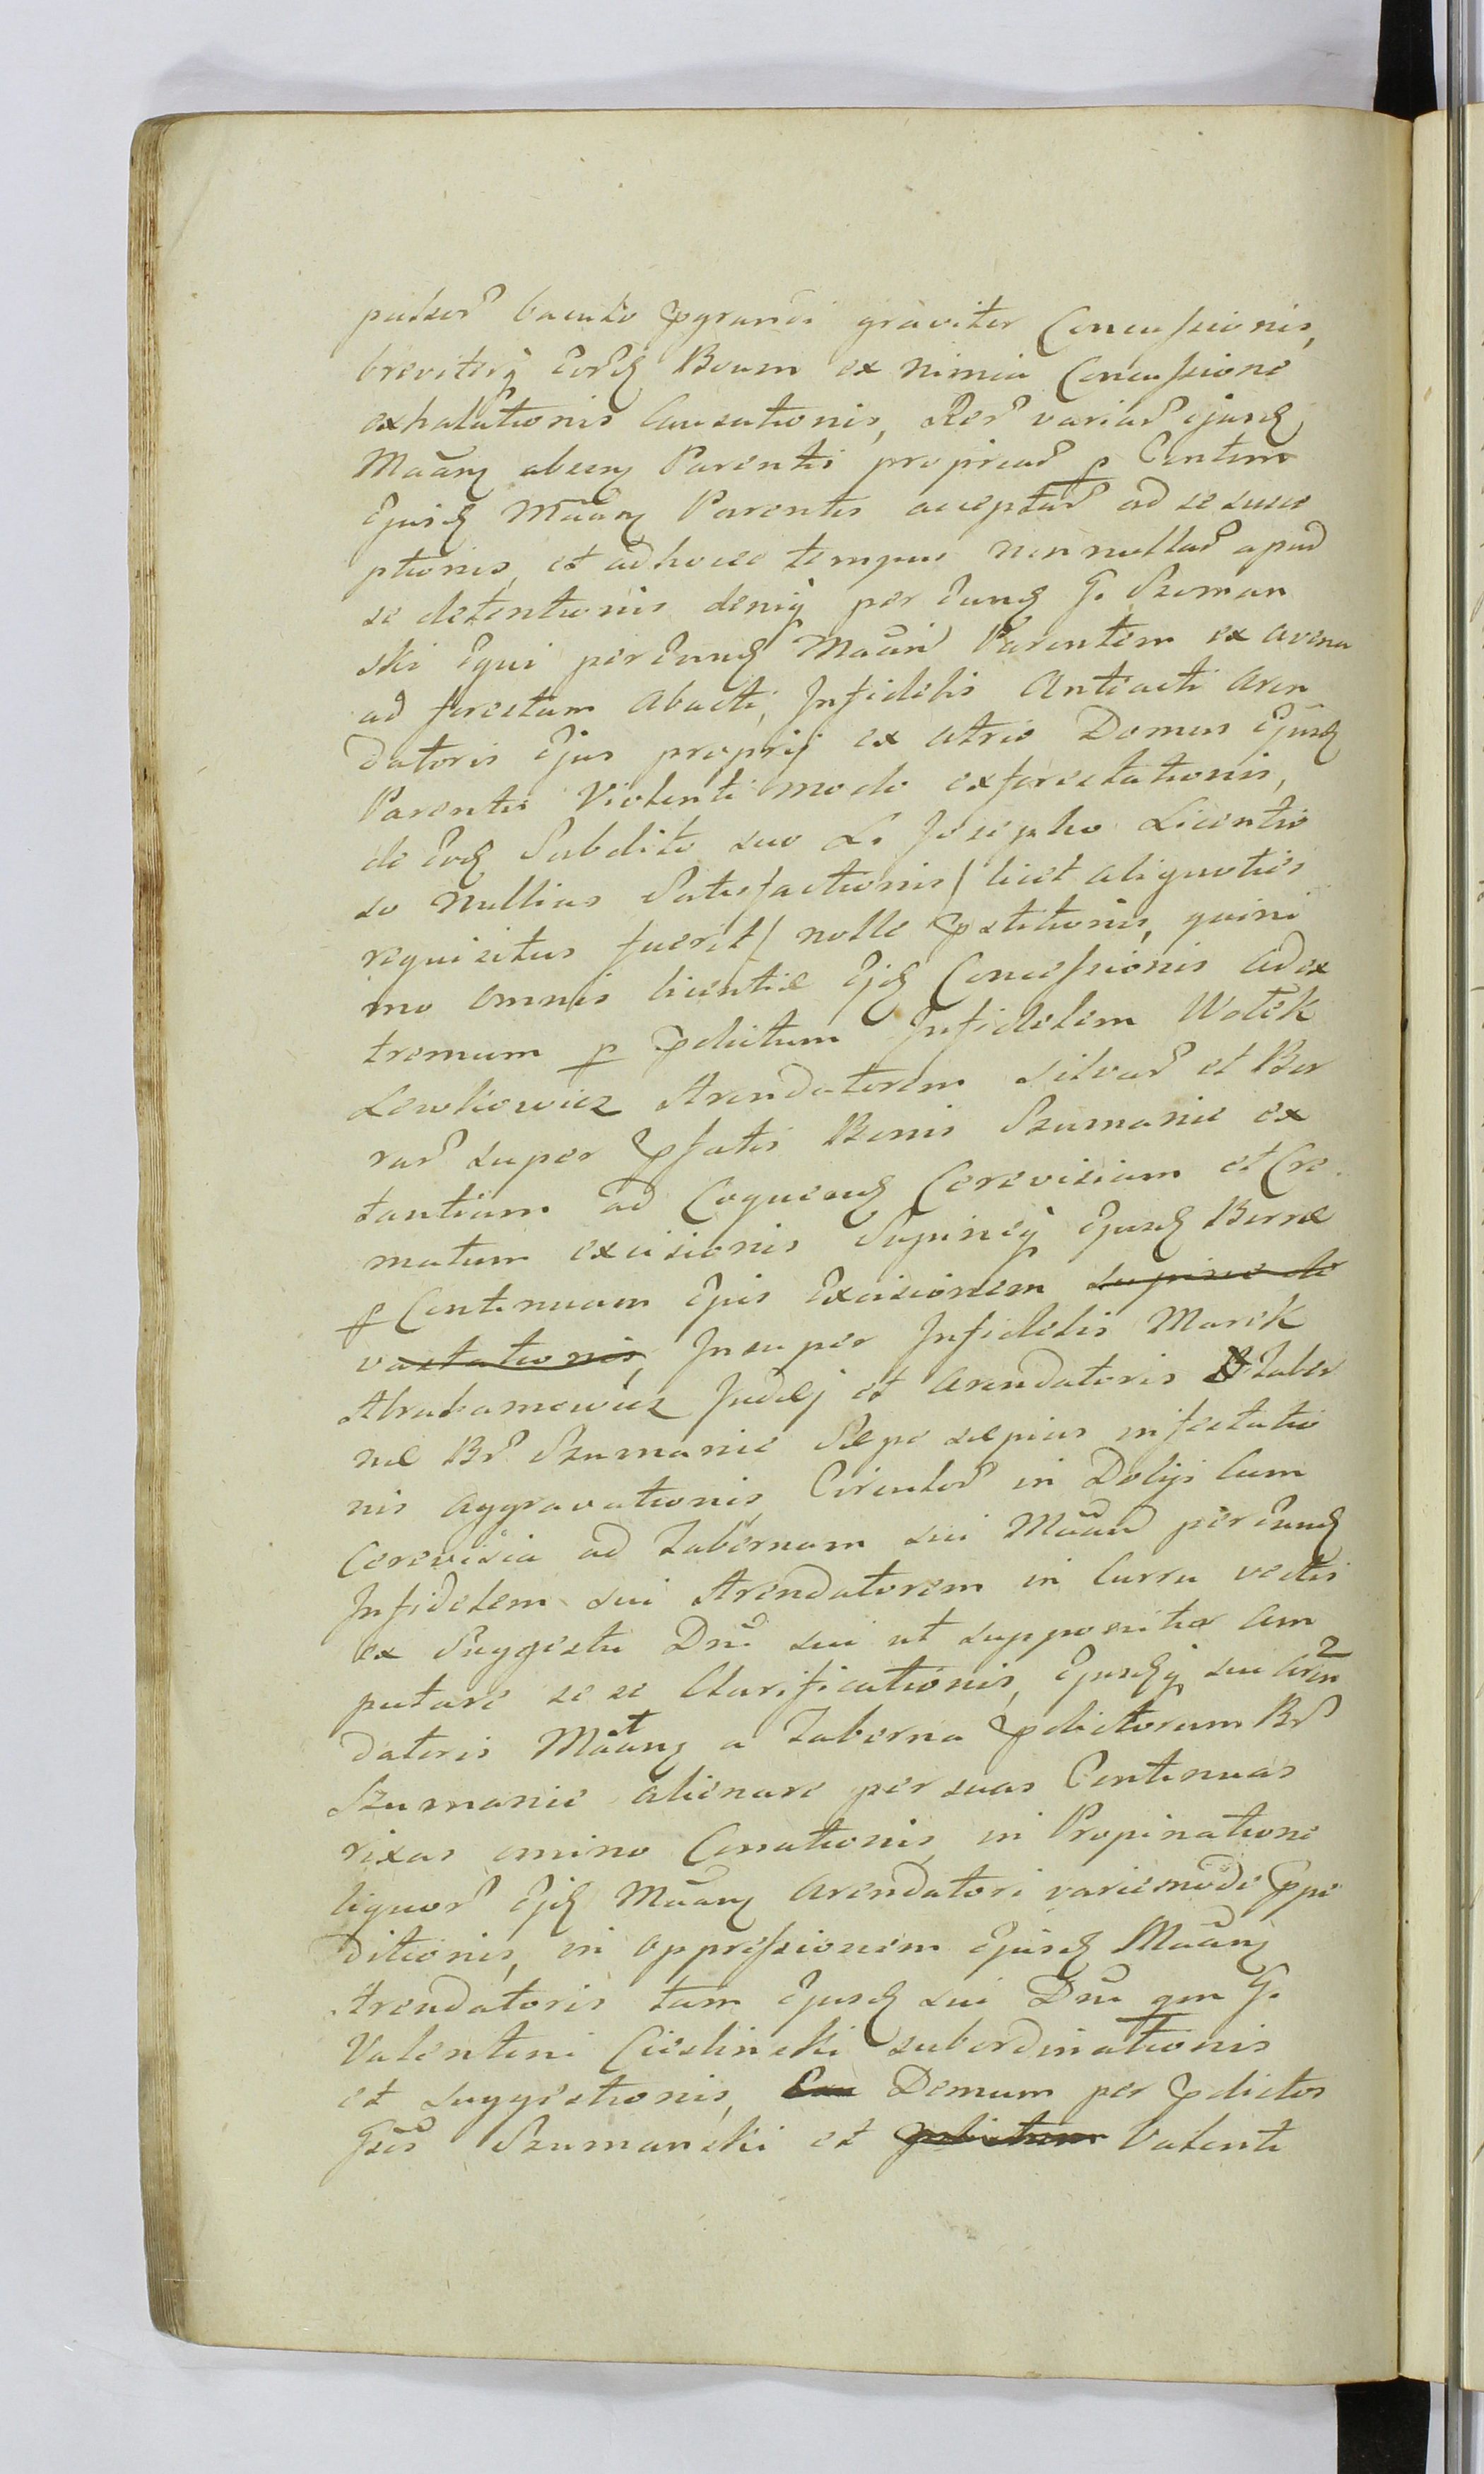 pulsor baculo pgrandi graviter Concussionis,
breviterq eord Boum ex nimia Concussione
exhalationis Causationis, Rer variar ejusd
Maan absen Parentis propriar p Centim
Ejusd Maan Parentis acceptar ad se susce
ptionis, et adhocce tempus nonnullar apud
se detentionis deniq per eund G. Szuman
ski Equi per eund Maan Parentem ex avena
ad forectum abacti, Infidelis Anteacti Aren
datoris Ejus proprij ex atrio Domus Ejusd
Parentis Violenti modo exforectationis,
de eod Subdito suo L. Josepho Licentio
so nullius Satisfactionis / licet aliquoties
requisitus fuerit / nolle pstitionis, quini
mo omnis licentiæ Ejd Concessionis ad ex
tremum p pdictum Infidelem Wolek
Lewkowicz Arendatorem silvar et Bor
rar super pfatis Bonis Szumanie ex
tantium ad Coquend Cerevisiam et Cre
matum excisionis Supineq Ejusd Borræ
p Continuam Ejus Excisionem supine de
vastationis, Insuper Infidelis Marek
Abrahamowicz Judæj et Arendatoris Taber
næ Br Szumanie Sæpe sæpius infestatio
nis aggravationis, Circulor in Dolijs Cum
Cerevisia ad Tabernam sui Maan per eund
Infidelem sui Arendatorem in Curru vectis
ex Suggestu Dni sui ut supponitur am
putare se se Clarificationis, Ejusdq sui Aren
datoris Maan a Taberna pdictorum Br
Szumanie alienare per suas Continuas
rixas omino Conationis, in Propinatione
liquor Ejd Maan Arendatori variemode ppe
ditionis, in oppressionem Ejusd Maan
Arendatoris tam Ejusd sui Dni qm G.
Valentini Cieslinski subordinationis
et suggestionis, Demum per pdictos
Gsos Szumanski et pdictum Valenti